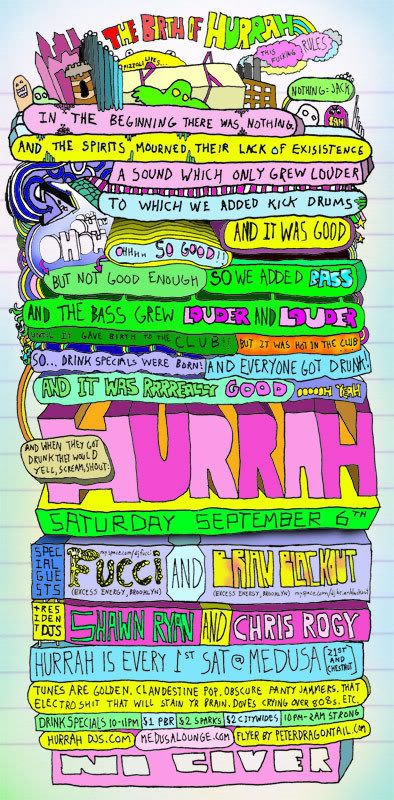 THE BIRTH OF HURRAH
THIS FUCKING RULES
PIZZOLI LIVES...
NOTHING-JACK
IN THE BEGINNING THERE WAS NOTHING.
AND THE SPIRITS MOURNED THEIR LACK OF EXISISTENCE
A SOUND WHICH ONLY GREW LOUDER
TO WHICH WE ADDED KICK DRUMS
AND IT WAS GOOD
OHHHH SO GOOD!!
BUT NOT GOOD ENOUGH SO WE ADDED BASS
AND THE BASS GREW LOUDER AND LOUDER
UNTIL IT GAVE BIRTH TO THE CLUB!! BUT IT WAS HOT IN THE CLUB
SO... DRINK SPECIALS WERE BORN! AND EVERYONE GOT DRUNK!
AND IT WAS RRRREEALLY GOOD OOOOOH YEAH
AND WHEN THEY GOT DRUNK THEY WOULD YELL, SCREAM, SHOUT:
HURRAH
SATURDAY SEPTEMBER 6TH
SPECIAL GUESTS
FUCCI AND BRIAN BLACKOUT
myspace.com/djfucci
(EXCESS ENERGY, BROOKLYN) (EXCESS ENERGY, BROOKLYN)
+RESIDENT DJS SHAWN RYAN AND CHRIS ROGY
HURRAH IS EVERY 1ST SAT @ MEDUSA 21ST AND CHESTNUT
TUNES ARE GOLDEN. CLANDESTINE POP. OBSCURE PANTY JAMMERS. THAT
ELECTRO SHIT THAT WILL STAIN YR BRAIN. DOVES CRYING OVER 808S. ETC.
DRINK SPECIALS 10-11PM $1 PBR $2 SPARKS $2 CITYWIDES 10PM-2AM STRONG
HURRAH DJS.COM MEDUSALOUNGE.COM FLYER BY PETERDRAGONTAIL.COM
NO COVER